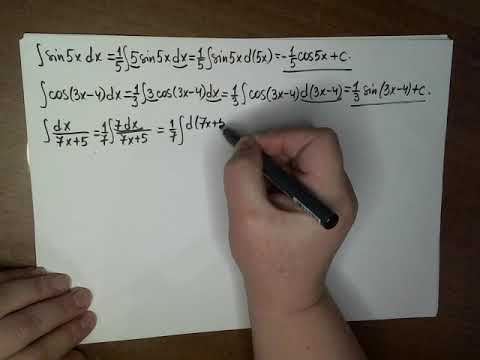 ∫sin5x dx = 1/5 ∫5 sin5x dx = 1/5 ∫sin5x d(5x) = -1/5 cos5x + c.
∫cos(3x-4)dx = 1/3 ∫3 cos(3x-4)dx = 1/3 ∫cos(3x-4) d(3x-4) = 1/3 sin(3x-4) + c.
∫dx/(7x+5) = 1/7 ∫7dx/(7x+5) = 1/7 ∫d(7x+5